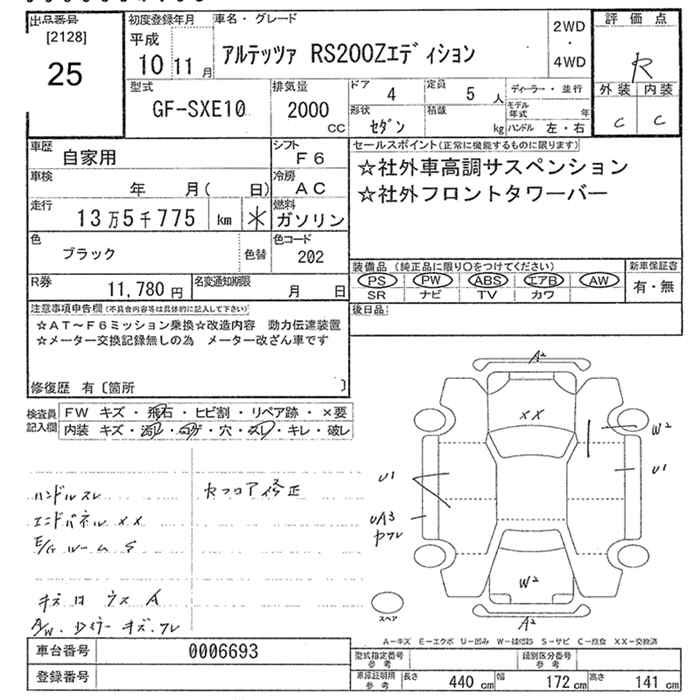 出品番号
[2128]
25
初度登録年月
平成
10 11 月
車名・グレード
アルテッツァ RS200Zエディション
2WD
・
4WD
評価点
R
外装 内装
C C
型式
GF-SXE10
排気量
2000
CC
ドア
4
定員
5 人
ディーラー・並行
形状
セダン
積載
kg
モデル年式 年
ハンドル 左・右
車歴
自家用
シフト
F6
車検
年 月( 日)
冷房
AC
走行
13万5千775 km *
燃料
ガソリン
色
ブラック
色替
色コード
202
R券
11,780 円
名変通知期限
月 日
セールスポイント(正常に機能するものに限ります)
☆社外車高調サスペンション
☆社外フロントタワーバー
装備品(純正品に限り〇をつけてください)
PS PW ABS エアB AW
SR ナビ TV カワ
新車保証書
有・無
後日品
注意事項申告欄(不具合内容等は具体的に記入して下さい)
☆AT~F6ミッション乗換☆改造内容 動力伝達装置
☆メーター交換記録無しの為 メーター改ざん車です
修復歴 有〔箇所 〕
検査員記入欄
FW キズ・飛石・ヒビ割・リペア跡・×要
内装 キズ・汚レ・コゲ・穴・スレ・キレ・破レ
ハンドルスレ
セフロア修正
エンドパネルXX
E/Gルーム S
キズ
A/W
A2
XX
W2
U1
U1
UA3
ヤブレ
W2
A2
スペア
A-キズ E-エクボ U-凹み W-補修跡 S-サビ C-腐食 XX-交換済
車台番号
0006693
登録番号
型式指定番号
参考
類別区分番号
参考
車検証期限
参考
長さ 440 cm 幅 172 cm 高さ 141 cm